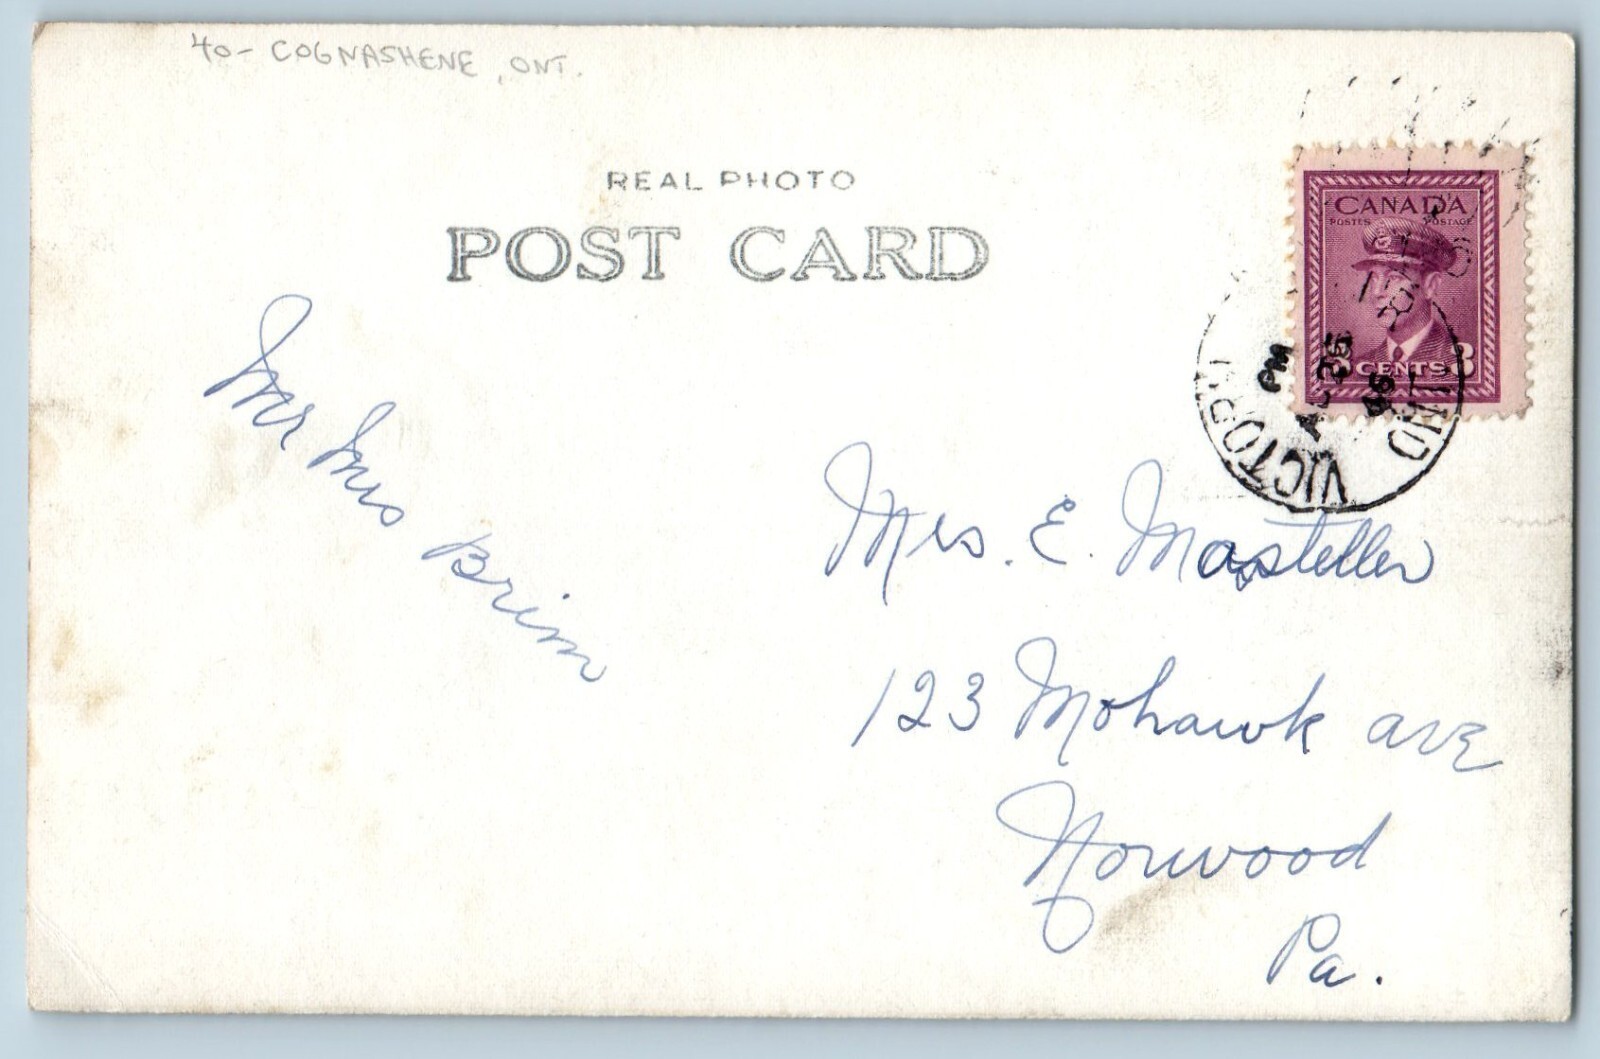 40- COGNASHENE, ONT.
REAL PHOTO
POST CARD
CANADA
POSTES POSTAGE
3 CENTS 3
PM
AU 26
46
VICTORIA
ONT
Mr Mrs Brim
Mrs. E. Masteller
123 Mohawk ave
Norwood
Pa.